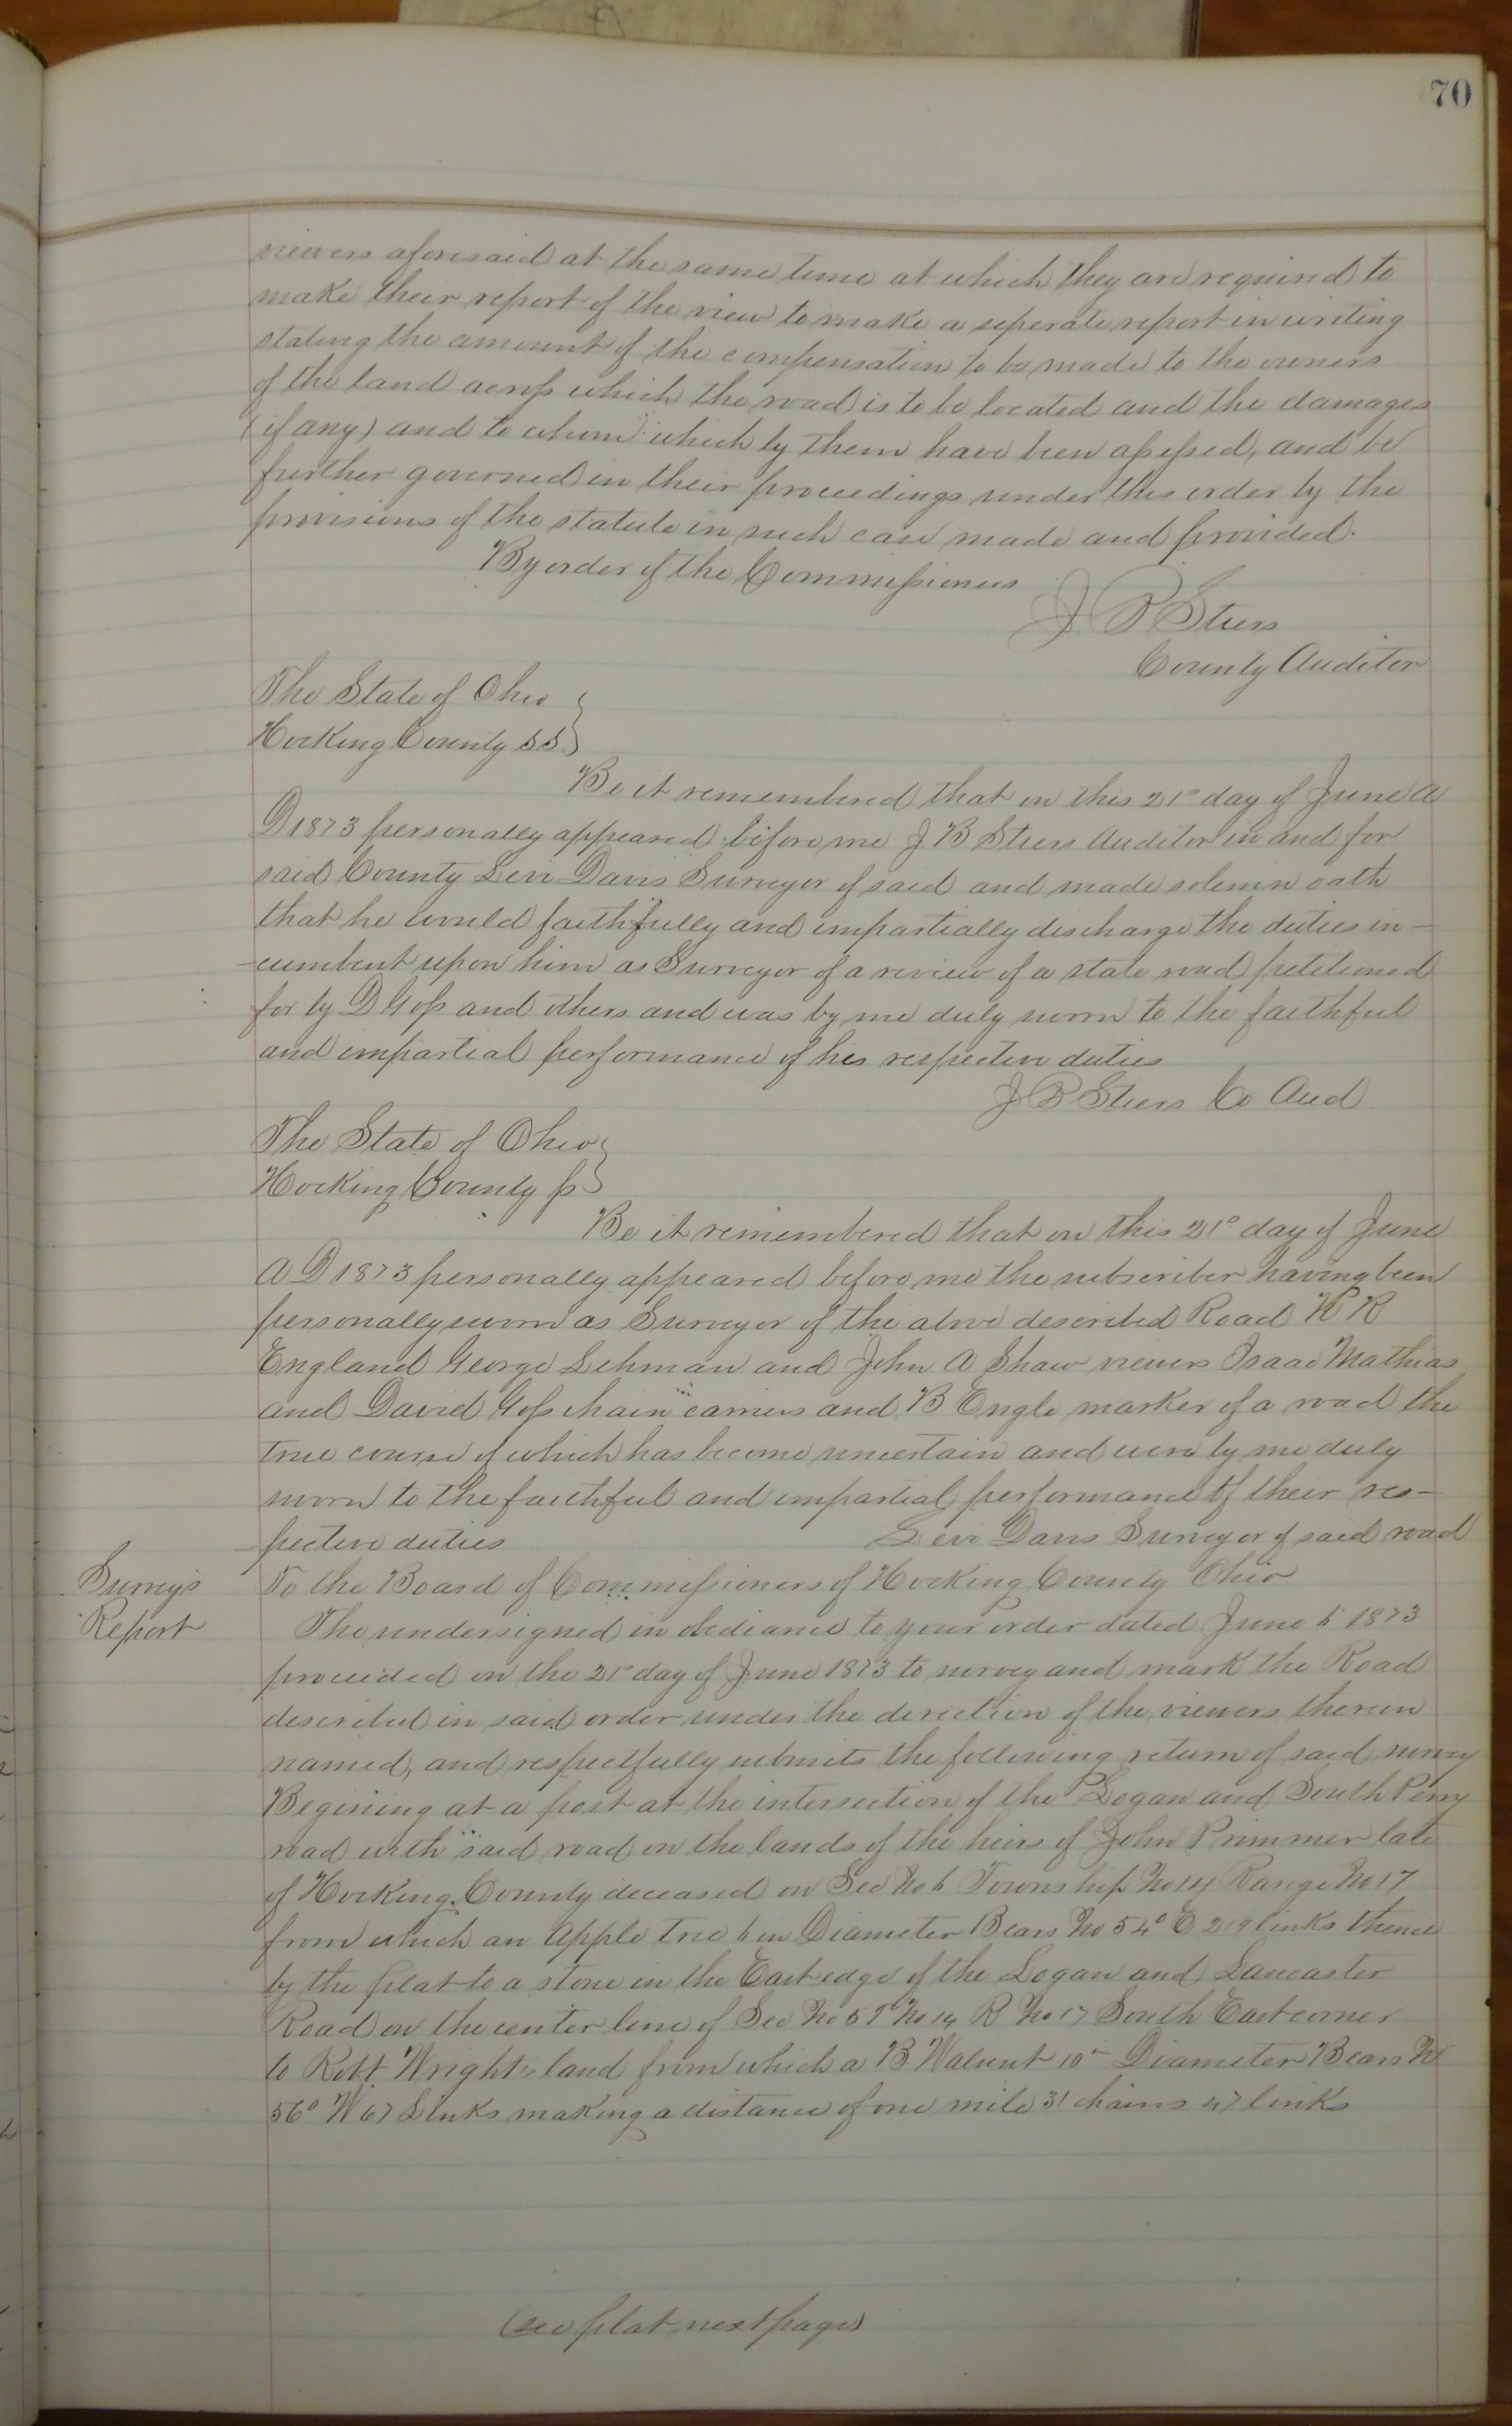 70
viewers aforesaid at the same time at which they are required to
make their report of the view to make a seperate report in writing
stating the amount of the compensation to be made to the owners
of the land across which the road is to be located and the damages
(if any) and to whom which by them have been assessed, and be
further governed in their proceedings under this order by the
provisions of the statute in such case made and provided.
By order of the Commissioners
J B Stiers
County Auditor
The State of Ohio
Hocking County SS
Be it remembered that on this 21st day of June A
D 1873 personally appeared before me J. B Stiers Auditor in and for
said County Levi Davis Surveyor of said and made solemn oath
that he would faithfully and impartially discharge the duties in-
-cumbent upon him as Surveyor of a review of a state road petitioned
for by D Goss and others and was by me duly sworn to the faithful
and impartial performance of his respective duties
J B Stiers Co Aud
The State of Ohio
Hocking County ss
Be it remembered that on this 21st day of June
A D 1873 personally appeared before me the subscriber having been
personally sworn as Surveyor of the above described Road R
England George Lehman and John A Shaw viewers Isaac Mathias
and David Goss chain carriers and B Engle marker of a road the
true course of which has become uncertain and were by me duly
sworn to the faithful and impartial performance of their res-
pective duties Levi Davis Surveyor of said road
Survey's
Report
To the Board of Commissioners of Hocking County Ohio
The undersigned in obediance to your order dated June 1873
proceeded on the 21st day of June 1873 to survey and mark the Road
described in said order under the direction of the viewers therein
named, and respectfully submits the following return of said survey
Begining at a post at the intersection of the Logan and South Perry
road with said road on the lands of the heirs of John Primmer late
of Hocking County deceased on Sec No 6 Township No 14 Range No 17
from which an Apple tree 6 in Diameter Bears No 54° E 219 links thence
by the plat to a stone in the East edge of the Logan and Lancaster
Road on the center line of Sec No 5 T No 14 R No 17 South East corner
to Robt Wrights land from which a B Walnut 10in Diameter Bears N
56° W 67 Links making a distance of one mile 31 chains 47 links
(see plat next page)